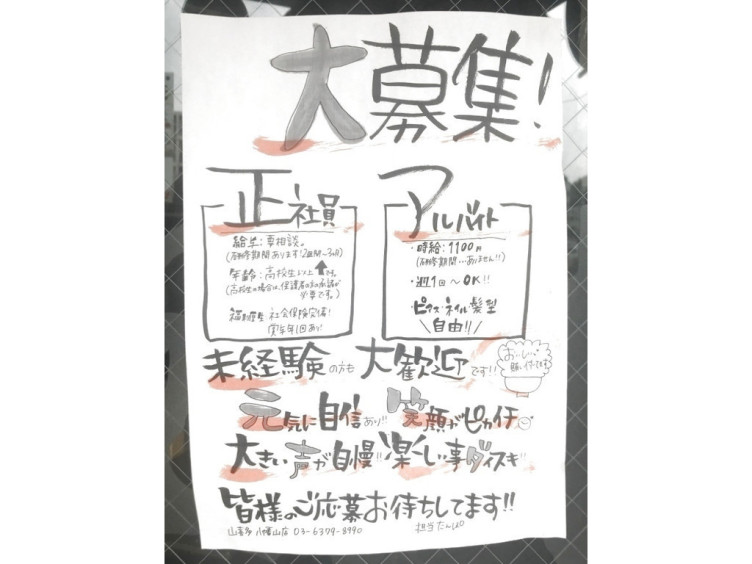 大募集!
正社員
給与:要相談。
(研修期間あります!2週間〜3ヶ月)
年齢:高校生以上です。
(高校生の場合は、保護者の方の承諾が
必要です。)
福利厚生:社会保険完備!
賞与年1回あり!
アルバイト
・時給:1100円
(研修期間…ありません!!)
・週1回〜OK!!
・ピアス・ネイル・髪型
\自由!!/
未経験の方も大歓迎です!!
おいしい
賄い付です
元気に自信あり!! 笑顔がピカイチ
大きい声が自慢!! 楽しい事ダイスキ!!
皆様のご応募お待ちしてます!!
山喜多 八幡山店 03-6379-8990
担当たんぽ